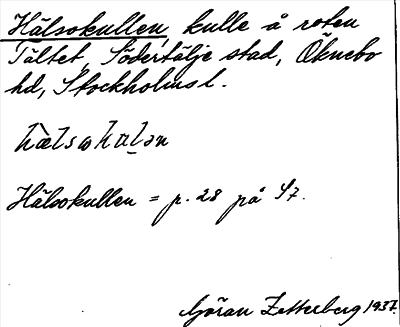 Hälsokullen, kulle å roten
Tältet, Södertälje stad, Öknebo
hd, Stockholms l.
Hälsokullen = p. 28 på S7.
Göran Zetterberg 1937.